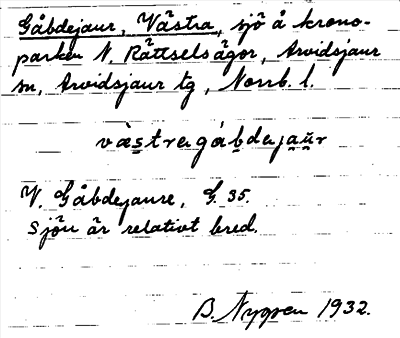 Gåbdejaur, Västra, sjö å krono-
parken N. Rättselsägor, Arvidsjaur
sn, Arvidsjaur tg, Norrb. l.
và̀stregábdejau̯r
V. Gåbdejaure, G. 35.
Sjön är relativt bred.
B. Nygren 1932.